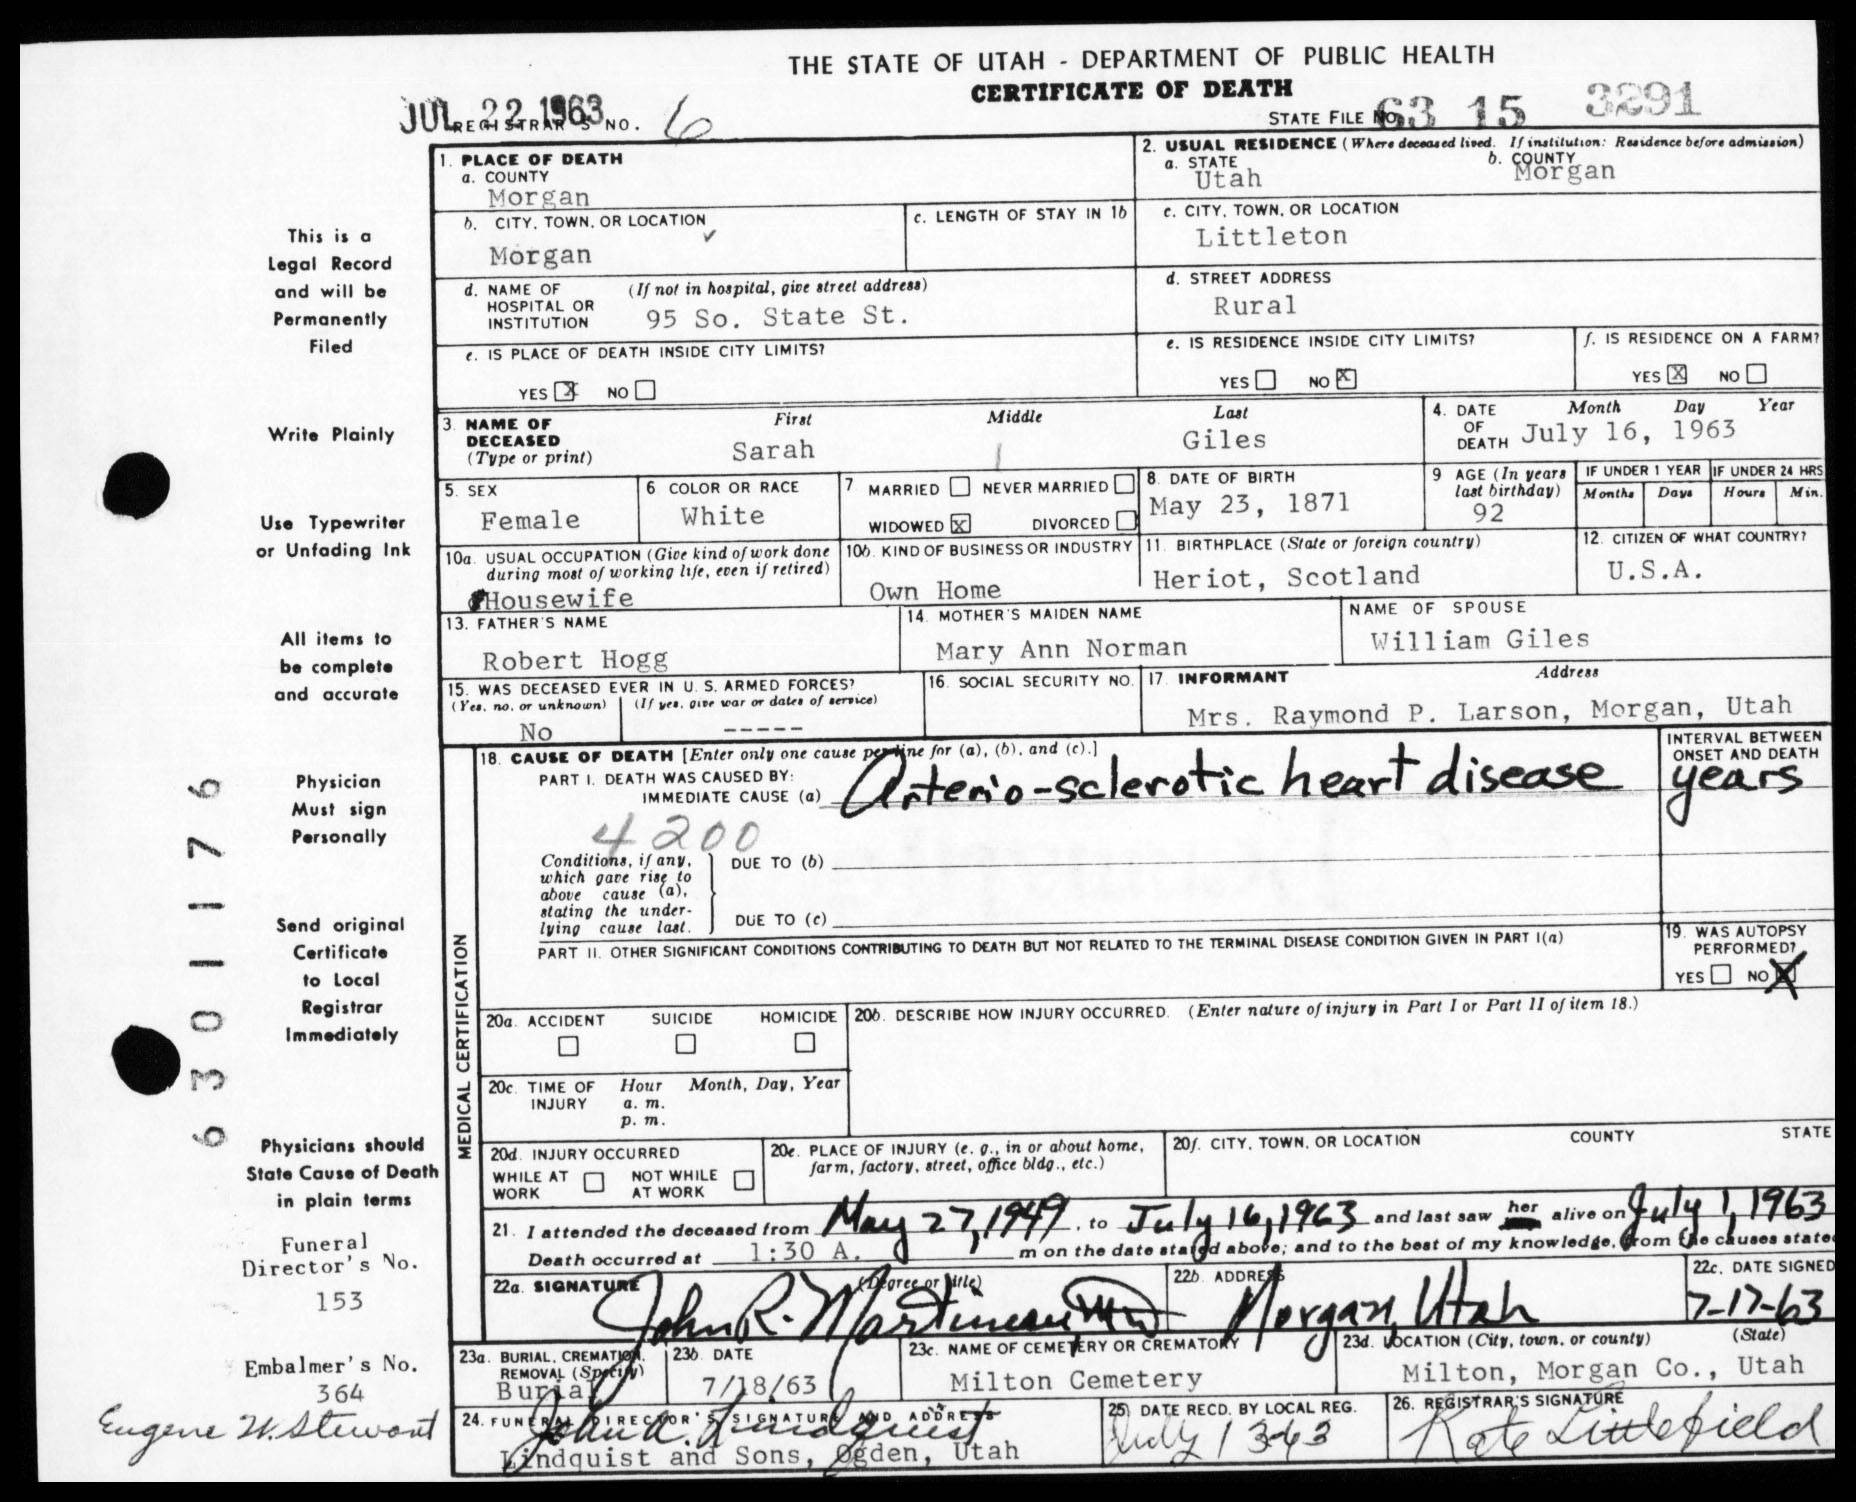 THE STATE OF UTAH - DEPARTMENT OF PUBLIC HEALTH
CERTIFICATE OF DEATH
JUL 22 1963
REGISTRAR'S NO. 6
STATE FILE NO. 63 15 3291
This is a
Legal Record
and will be
Permanently
Filed
Write Plainly
Use Typewriter
or Unfading Ink
All items to
be complete
and accurate
Physician
Must sign
Personally
Send original
Certificate
to Local
Registrar
Immediately
Physicians should
State Cause of Death
in plain terms
Funeral
Director's No.
153
Embalmer's No.
364
Eugene W. Stewart
6301176
1. PLACE OF DEATH
a. COUNTY
Morgan
2. USUAL RESIDENCE (Where deceased lived. If institution: Residence before admission)
a. STATE
Utah
b. COUNTY
Morgan
b. CITY, TOWN, OR LOCATION
Morgan
c. LENGTH OF STAY IN 1b
c. CITY, TOWN, OR LOCATION
Littleton
d. NAME OF HOSPITAL OR INSTITUTION (If not in hospital, give street address)
95 So. State St.
d. STREET ADDRESS
Rural
e. IS PLACE OF DEATH INSIDE CITY LIMITS?
YES X NO
e. IS RESIDENCE INSIDE CITY LIMITS?
YES NO X
f. IS RESIDENCE ON A FARM?
YES X NO
3. NAME OF DECEASED (Type or print)
First Middle Last
Sarah Giles
4. DATE OF DEATH Month Day Year
July 16, 1963
5. SEX
Female
6 COLOR OR RACE
White
7 MARRIED NEVER MARRIED
WIDOWED X DIVORCED
8. DATE OF BIRTH
May 23, 1871
9 AGE (In years last birthday)
92
IF UNDER 1 YEAR
Months Days
IF UNDER 24 HRS
Hours Min.
10a. USUAL OCCUPATION (Give kind of work done during most of working life, even if retired)
Housewife
10b. KIND OF BUSINESS OR INDUSTRY
Own Home
11. BIRTHPLACE (State or foreign country)
Heriot, Scotland
12. CITIZEN OF WHAT COUNTRY?
U.S.A.
13. FATHER'S NAME
Robert Hogg
14. MOTHER'S MAIDEN NAME
Mary Ann Norman
NAME OF SPOUSE
William Giles
15. WAS DECEASED EVER IN U. S. ARMED FORCES?
(Yes, no, or unknown) (If yes, give war or dates of service)
No -----
16. SOCIAL SECURITY NO.
17. INFORMANT Address
Mrs. Raymond P. Larson, Morgan, Utah
MEDICAL CERTIFICATION
18. CAUSE OF DEATH [Enter only one cause per line for (a), (b), and (c).]
PART I. DEATH WAS CAUSED BY:
IMMEDIATE CAUSE (a) Arterio-sclerotic heart disease
INTERVAL BETWEEN
ONSET AND DEATH
years
4200
Conditions, if any,
which gave rise to
above cause (a),
stating the under-
lying cause last.
DUE TO (b)
DUE TO (c)
PART II. OTHER SIGNIFICANT CONDITIONS CONTRIBUTING TO DEATH BUT NOT RELATED TO THE TERMINAL DISEASE CONDITION GIVEN IN PART I(a)
19. WAS AUTOPSY
PERFORMED?
YES NO X
20a. ACCIDENT SUICIDE HOMICIDE
20b. DESCRIBE HOW INJURY OCCURRED. (Enter nature of injury in Part I or Part II of item 18.)
20c. TIME OF INJURY Hour Month, Day, Year
a. m.
p. m.
20d. INJURY OCCURRED
WHILE AT WORK NOT WHILE AT WORK
20e. PLACE OF INJURY (e. g., in or about home, farm, factory, street, office bldg., etc.)
20f. CITY, TOWN, OR LOCATION COUNTY STATE
21. I attended the deceased from May 27, 1949, to July 16, 1963 and last saw her alive on July 1, 1963
Death occurred at 1:30 A. m on the date stated above; and to the best of my knowledge, from the causes state
22a. SIGNATURE (Degree or title)
John R. Martineau, MD
22b. ADDRESS
Morgan, Utah
22c. DATE SIGNED
7-17-63
23a. BURIAL, CREMATION, REMOVAL (Specify)
Burial
23b. DATE
7/18/63
23c. NAME OF CEMETERY OR CREMATORY
Milton Cemetery
23d. LOCATION (City, town, or county) (State)
Milton, Morgan Co., Utah
24. FUNERAL DIRECTOR'S SIGNATURE AND ADDRESS
John A. Lindquist
Lindquist and Sons, Ogden, Utah
25. DATE RECD. BY LOCAL REG.
July
26. REGISTRAR'S SIGNATURE
Kate Littlefield